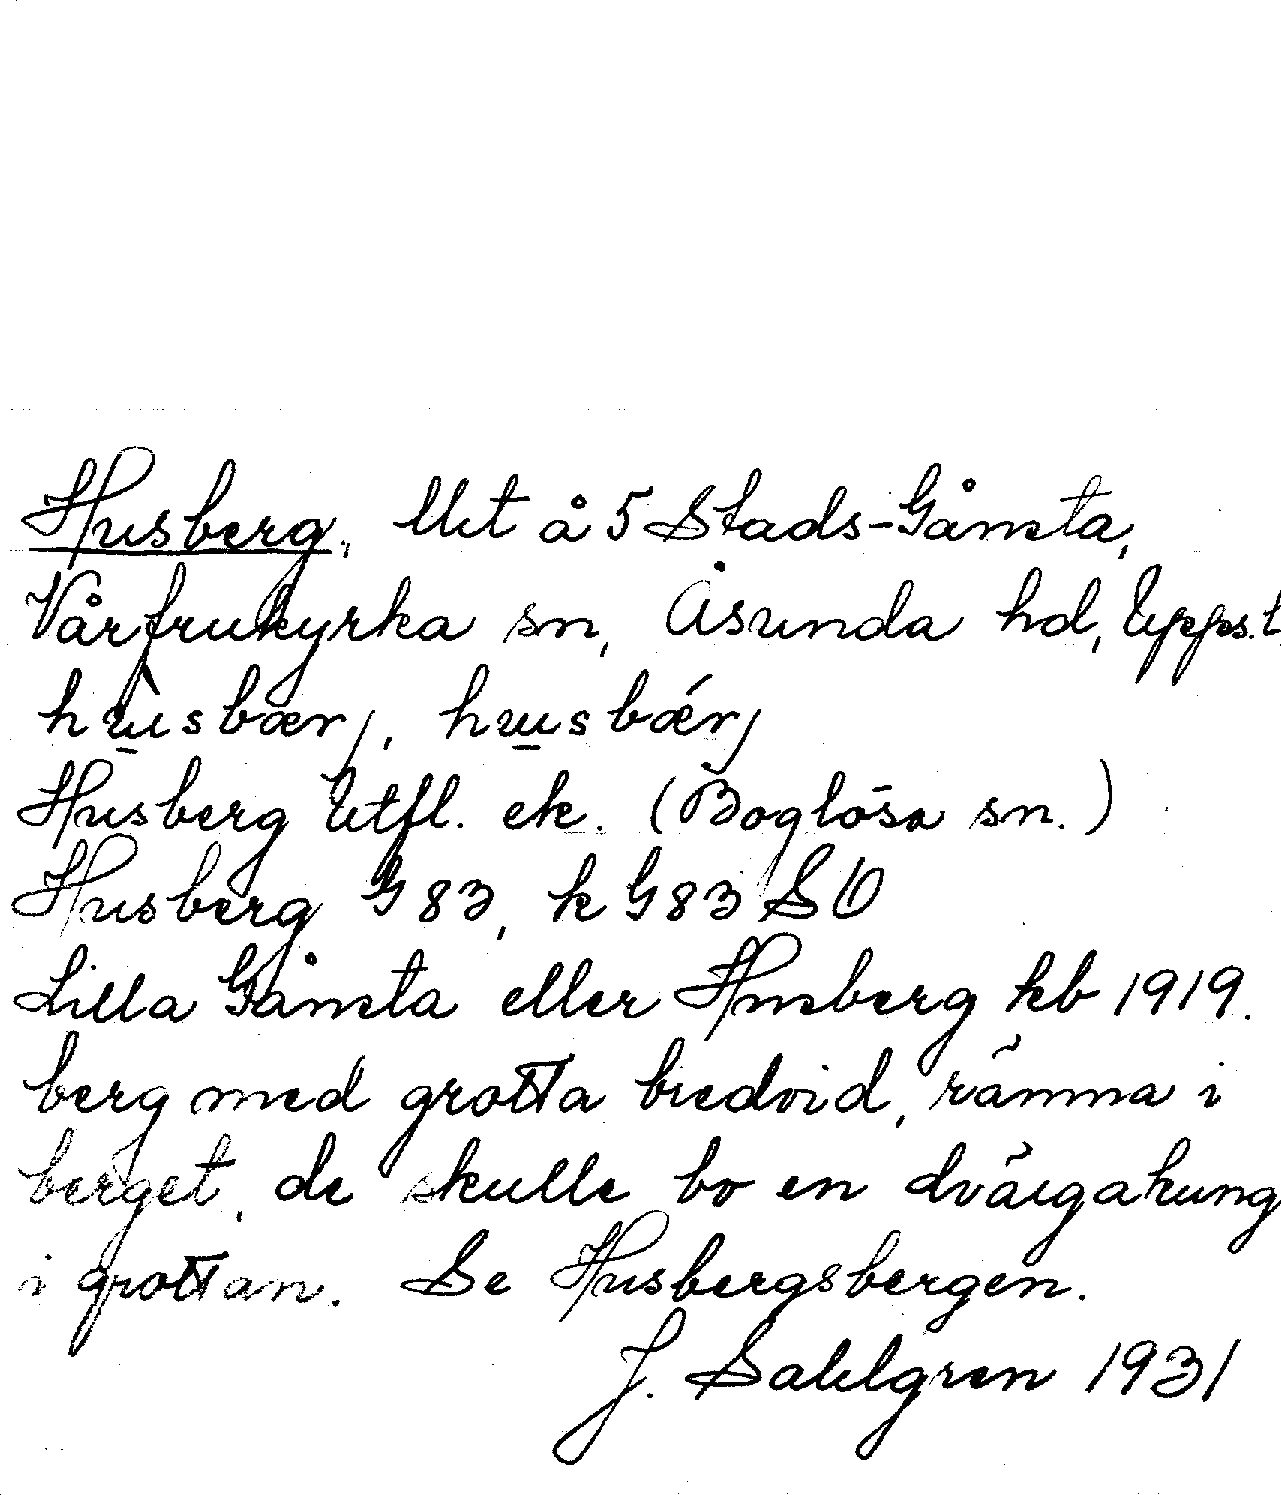 Husberg, Ut å 5 Stads-Gånsta,
Vårfrukyrka sn, Åsunda hd, Upps.l
husbærj, husbǽrj
Husberg Utfl. ek. (Boglösa sn.)
Husberg G 83, k G 83 SO
Lilla Gånsta eller Husberg kb 1919.
berg med grotta bredvid, rämna i
berget, de skulle bo en dvärgakung
i grottan. Se Husbergsbergen.
J. Sahlgren 1931